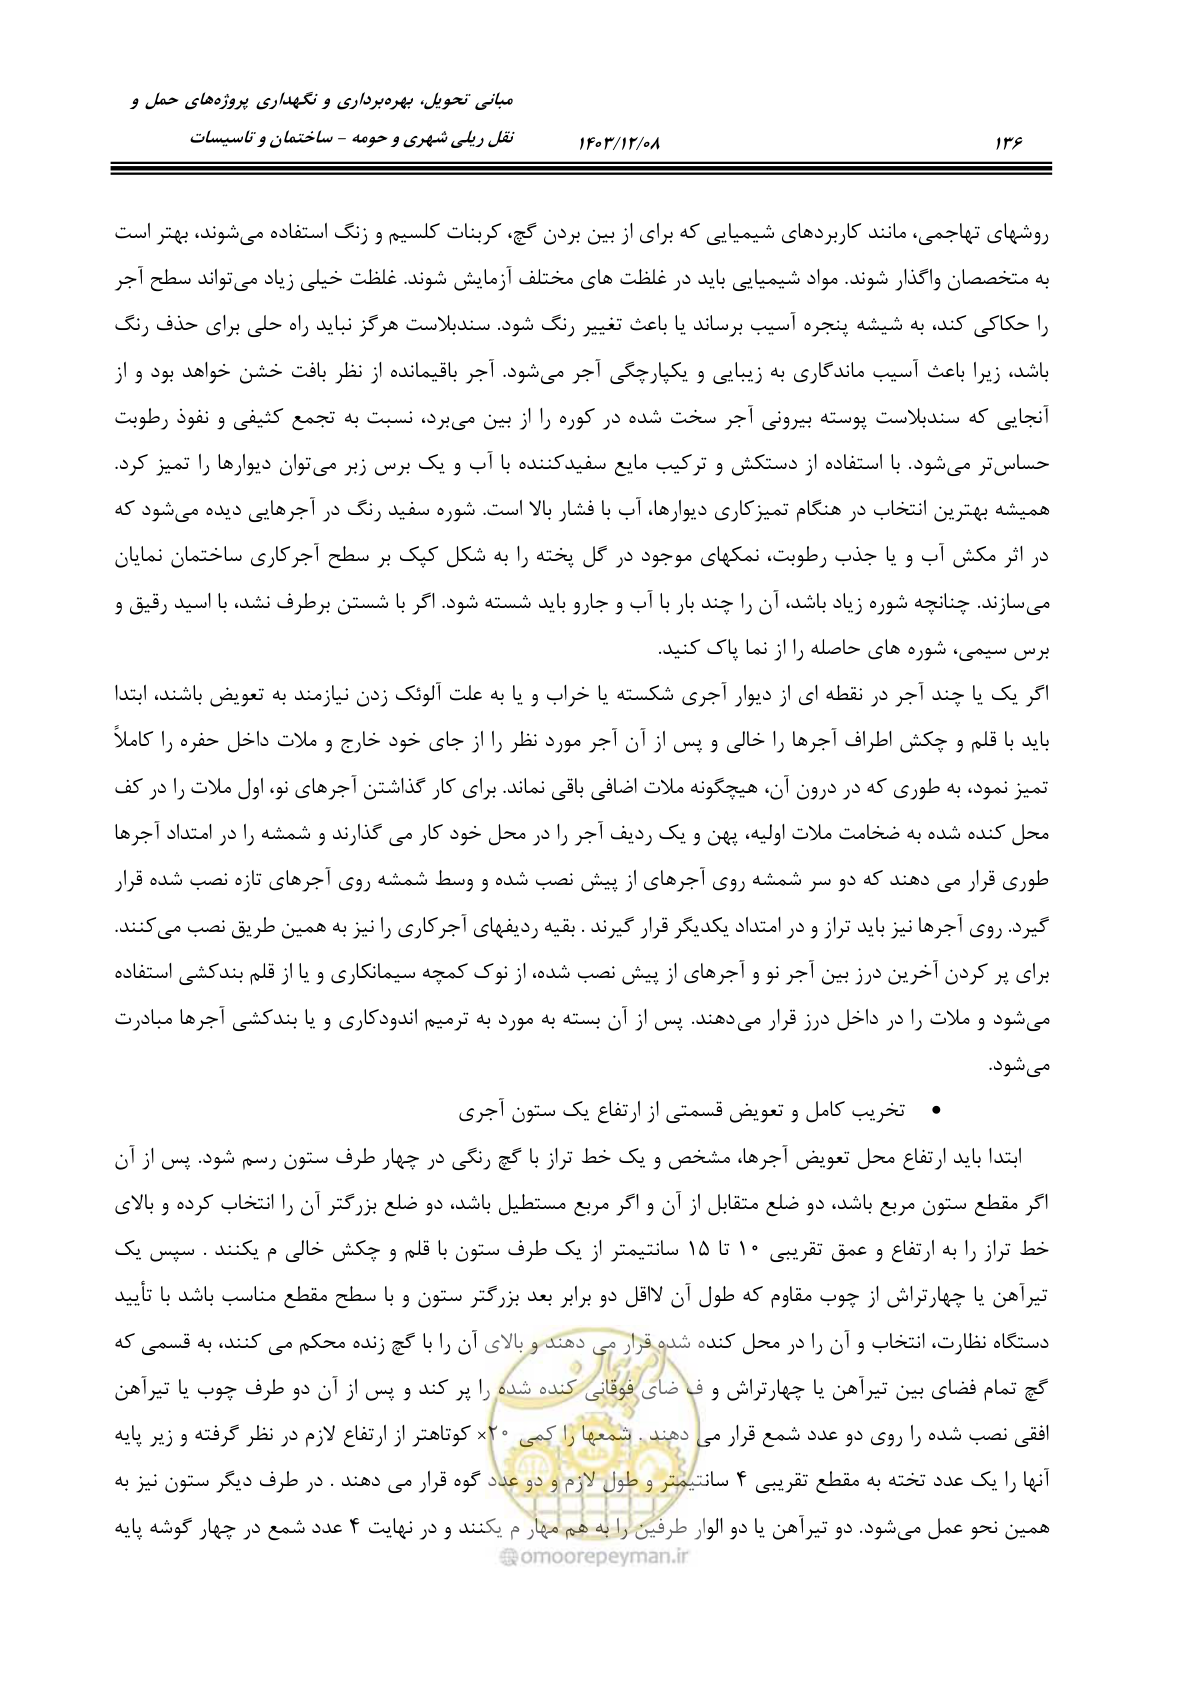 مبانی تحویل، بهره‌برداری و نگهداری پروژه‌های حمل و
نقل ریلی شهری و حومه – ساختمان و تاسیسات
۱۴۰۳/۱۲/۰۸
۱۳۶
روشهای تهاجمی، مانند کاربردهای شیمیایی که برای از بین بردن گچ، کربنات کلسیم و زنگ استفاده می‌شوند، بهتر است
به متخصصان واگذار شوند. مواد شیمیایی باید در غلظت های مختلف آزمایش شوند. غلظت خیلی زیاد می‌تواند سطح آجر
را حکاکی کند، به شیشه پنجره آسیب برساند یا باعث تغییر رنگ شود. سندبلاست هرگز نباید راه حلی برای حذف رنگ
باشد، زیرا باعث آسیب ماندگاری به زیبایی و یکپارچگی آجر می‌شود. آجر باقیمانده از نظر بافت خشن خواهد بود و از
آنجایی که سندبلاست پوسته بیرونی آجر سخت شده در کوره را از بین می‌برد، نسبت به تجمع کثیفی و نفوذ رطوبت
حساس‌تر می‌شود. با استفاده از دستکش و ترکیب مایع سفیدکننده با آب و یک برس زبر می‌توان دیوارها را تمیز کرد.
همیشه بهترین انتخاب در هنگام تمیزکاری دیوارها، آب با فشار بالا است. شوره سفید رنگ در آجرهایی دیده می‌شود که
در اثر مکش آب و یا جذب رطوبت، نمکهای موجود در گل پخته را به شکل کپک بر سطح آجرکاری ساختمان نمایان
می‌سازند. چنانچه شوره زیاد باشد، آن را چند بار با آب و جارو باید شسته شود. اگر با شستن برطرف نشد، با اسید رقیق و
برس سیمی، شوره های حاصله را از نما پاک کنید.
اگر یک یا چند آجر در نقطه ای از دیوار آجری شکسته یا خراب و یا به علت آلوئک زدن نیازمند به تعویض باشند، ابتدا
باید با قلم و چکش اطراف آجرها را خالی و پس از آن آجر مورد نظر را از جای خود خارج و ملات داخل حفره را کاملاً
تمیز نمود، به طوری که در درون آن، هیچگونه ملات اضافی باقی نماند. برای کار گذاشتن آجرهای نو، اول ملات را در کف
محل کنده شده به ضخامت ملات اولیه، پهن و یک ردیف آجر را در محل خود کار می گذارند و شمشه را در امتداد آجرها
طوری قرار می دهند که دو سر شمشه روی آجرهای از پیش نصب شده و وسط شمشه روی آجرهای تازه نصب شده قرار
گیرد. روی آجرها نیز باید تراز و در امتداد یکدیگر قرار گیرند . بقیه ردیفهای آجرکاری را نیز به همین طریق نصب می‌کنند.
برای پر کردن آخرین درز بین آجر نو و آجرهای از پیش نصب شده، از نوک کمچه سیمانکاری و یا از قلم بندکشی استفاده
می‌شود و ملات را در داخل درز قرار می‌دهند. پس از آن بسته به مورد به ترمیم اندودکاری و یا بندکشی آجرها مبادرت
می‌شود.
• تخریب کامل و تعویض قسمتی از ارتفاع یک ستون آجری
ابتدا باید ارتفاع محل تعویض آجرها، مشخص و یک خط تراز با گچ رنگی در چهار طرف ستون رسم شود. پس از آن
اگر مقطع ستون مربع باشد، دو ضلع متقابل از آن و اگر مربع مستطیل باشد، دو ضلع بزرگتر آن را انتخاب کرده و بالای
خط تراز را به ارتفاع و عمق تقریبی ۱۰ تا ۱۵ سانتیمتر از یک طرف ستون با قلم و چکش خالی م یکنند . سپس یک
تیرآهن یا چهارتراش از چوب مقاوم که طول آن لااقل دو برابر بعد بزرگتر ستون و با سطح مقطع مناسب باشد با تأیید
دستگاه نظارت، انتخاب و آن را در محل کنده شده قرار می دهند و بالای آن را با گچ زنده محکم می کنند، به قسمی که
گچ تمام فضای بین تیرآهن یا چهارتراش و ف ضای فوقانی کنده شده را پر کند و پس از آن دو طرف چوب یا تیرآهن
افقی نصب شده را روی دو عدد شمع قرار می دهند . شمعها را کمی ۲۰× کوتاهتر از ارتفاع لازم در نظر گرفته و زیر پایه
آنها را یک عدد تخته به مقطع تقریبی ۴ سانتیمتر و طول لازم و دو عدد گوه قرار می دهند . در طرف دیگر ستون نیز به
همین نحو عمل می‌شود. دو تیرآهن یا دو الوار طرفین را به هم مهار م یکنند و در نهایت ۴ عدد شمع در چهار گوشه پایه
امور پیمان
@omoorepeyman.ir